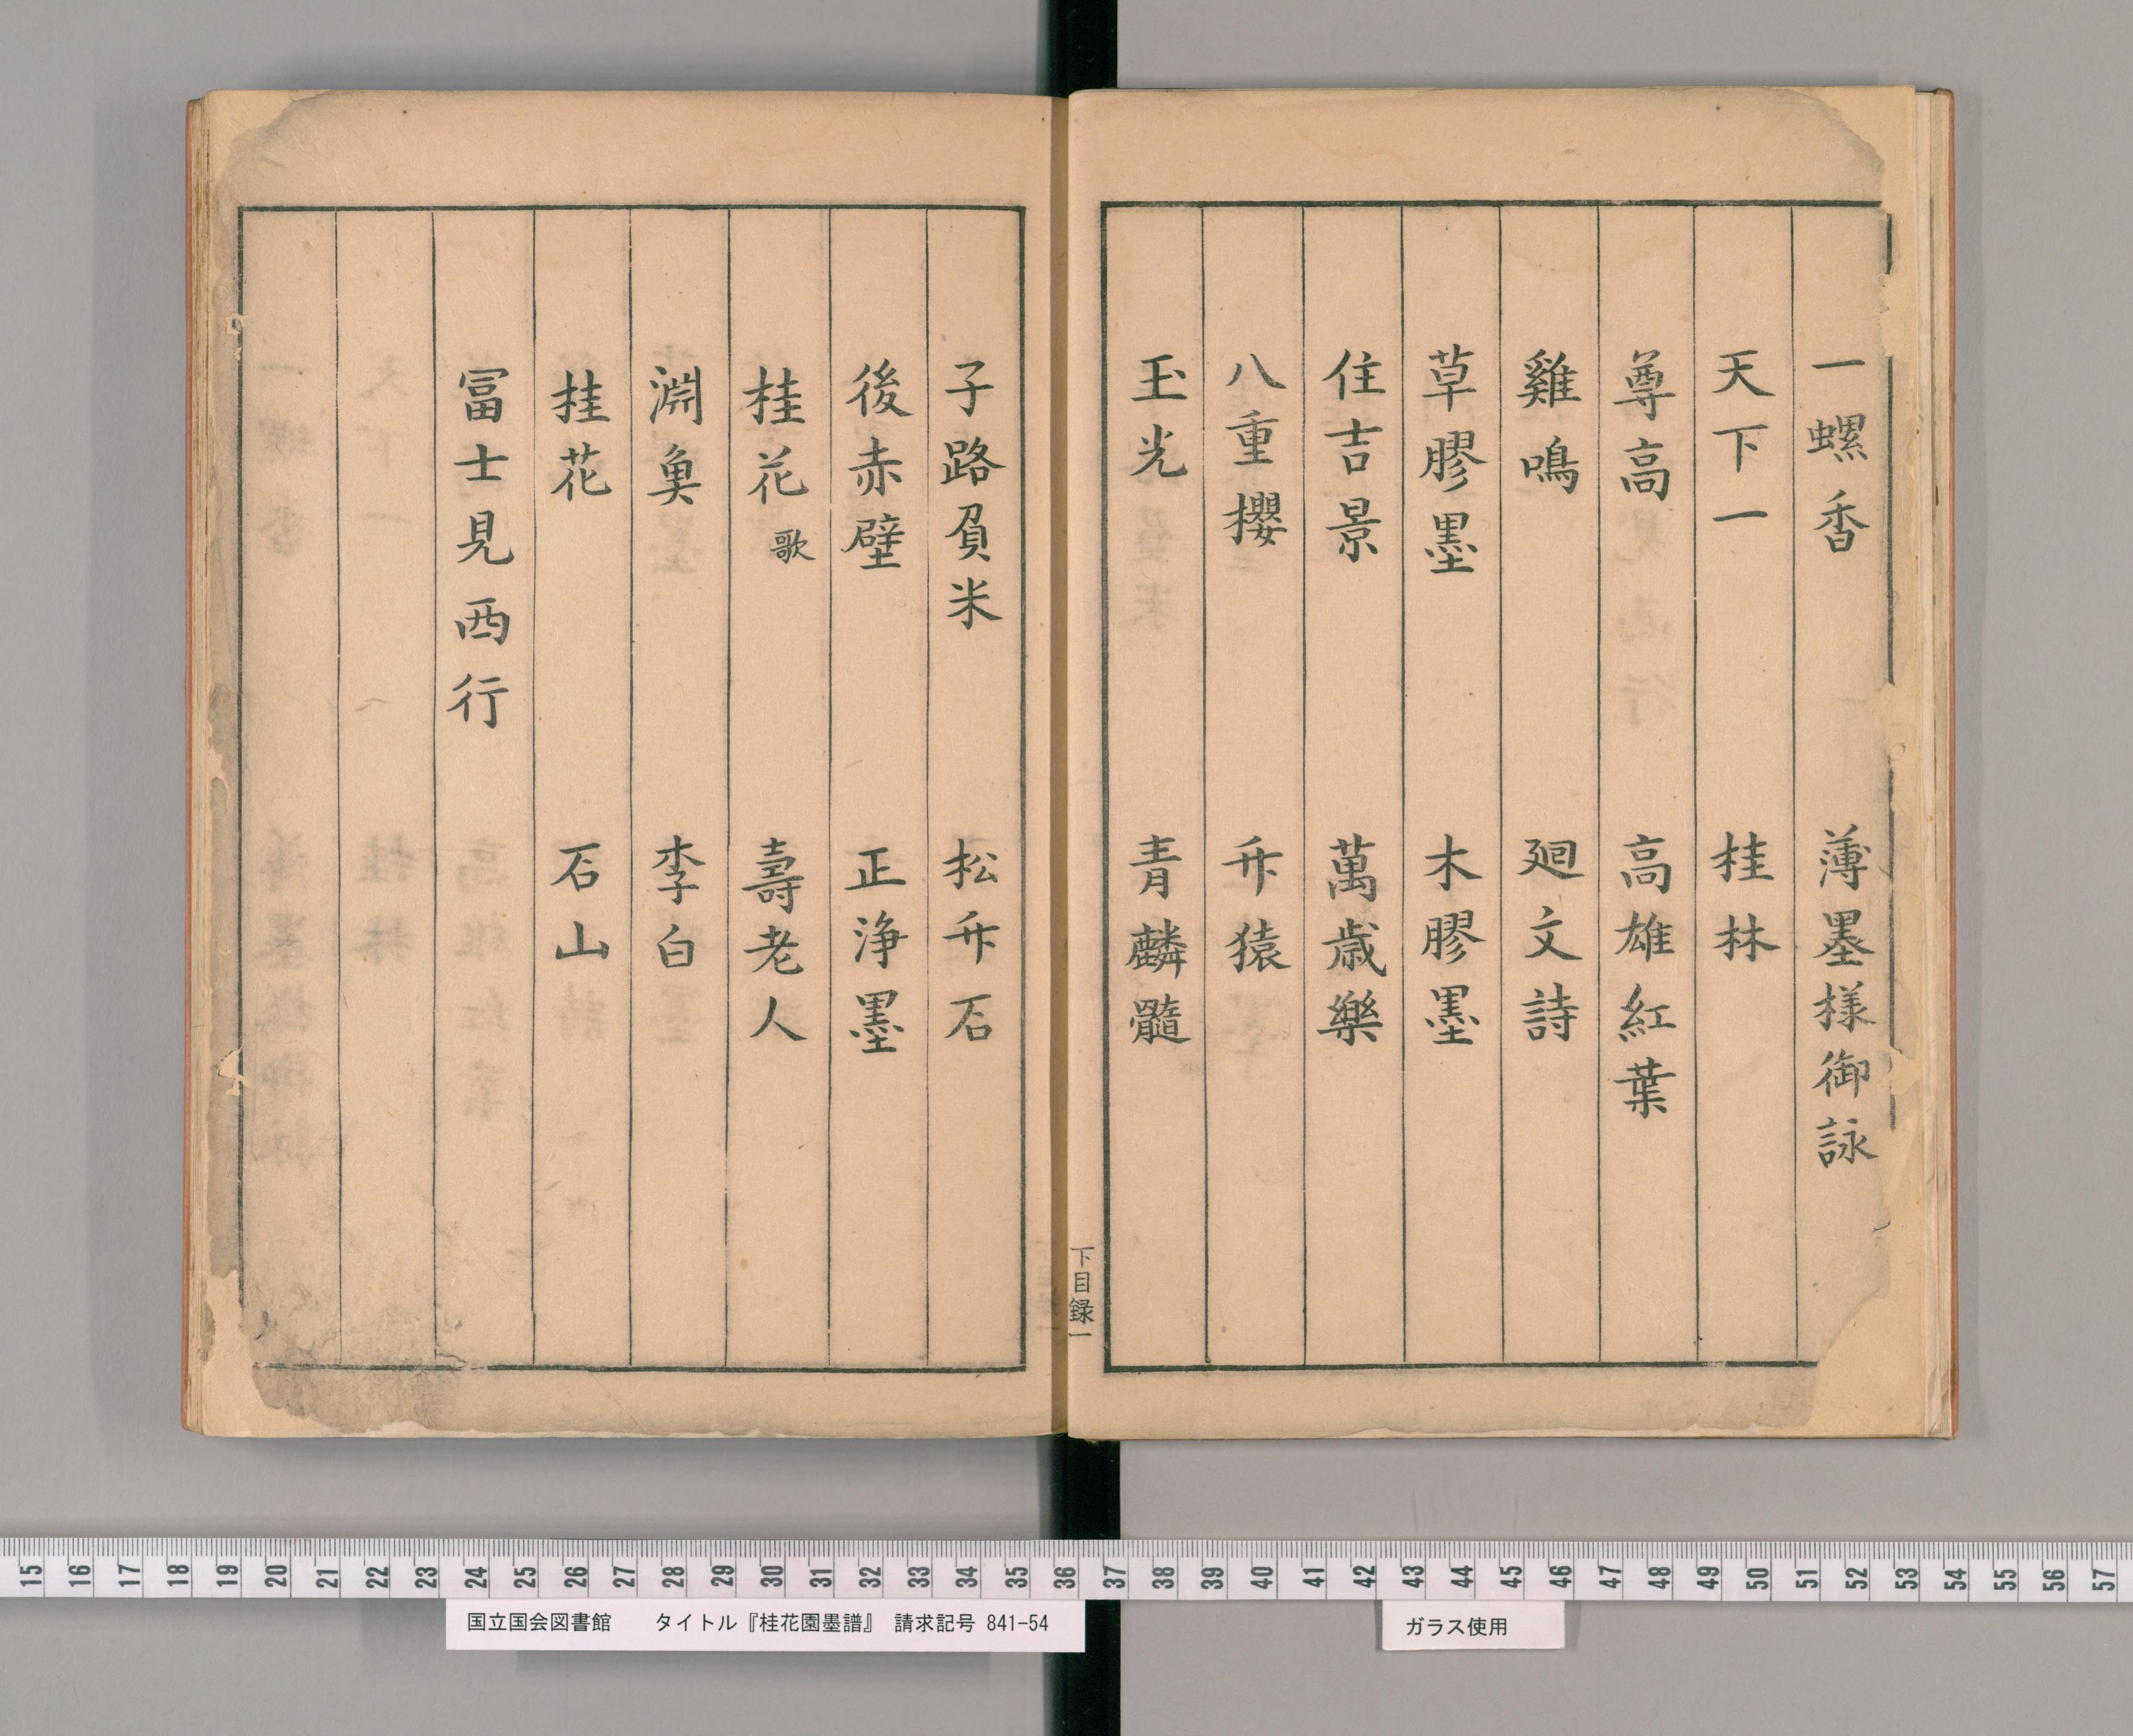 一螺香　薄墨様御詠
天下一　桂林
尊高　高雄紅葉
雞鳴　廻文詩
草膠墨　木膠墨
住吉景　萬歳樂
八重櫻　廾猿
玉光　青麟髓
下目録一
子路負米　松廾石
後赤壁　正浄墨
桂花歌　壽老人
淵魚　李白
桂花　石山
冨士見西行
15 16 17 18 19 20 21 22 23 24 25 26 27 28 29 30 31 32 33 34 35 36 37 38 39 40 41 42 43 44 45 46 47 48 49 50 51 52 53 54 55 56 57
国立国会図書館　タイトル『桂花園墨譜』　請求記号 841-54
ガラス使用